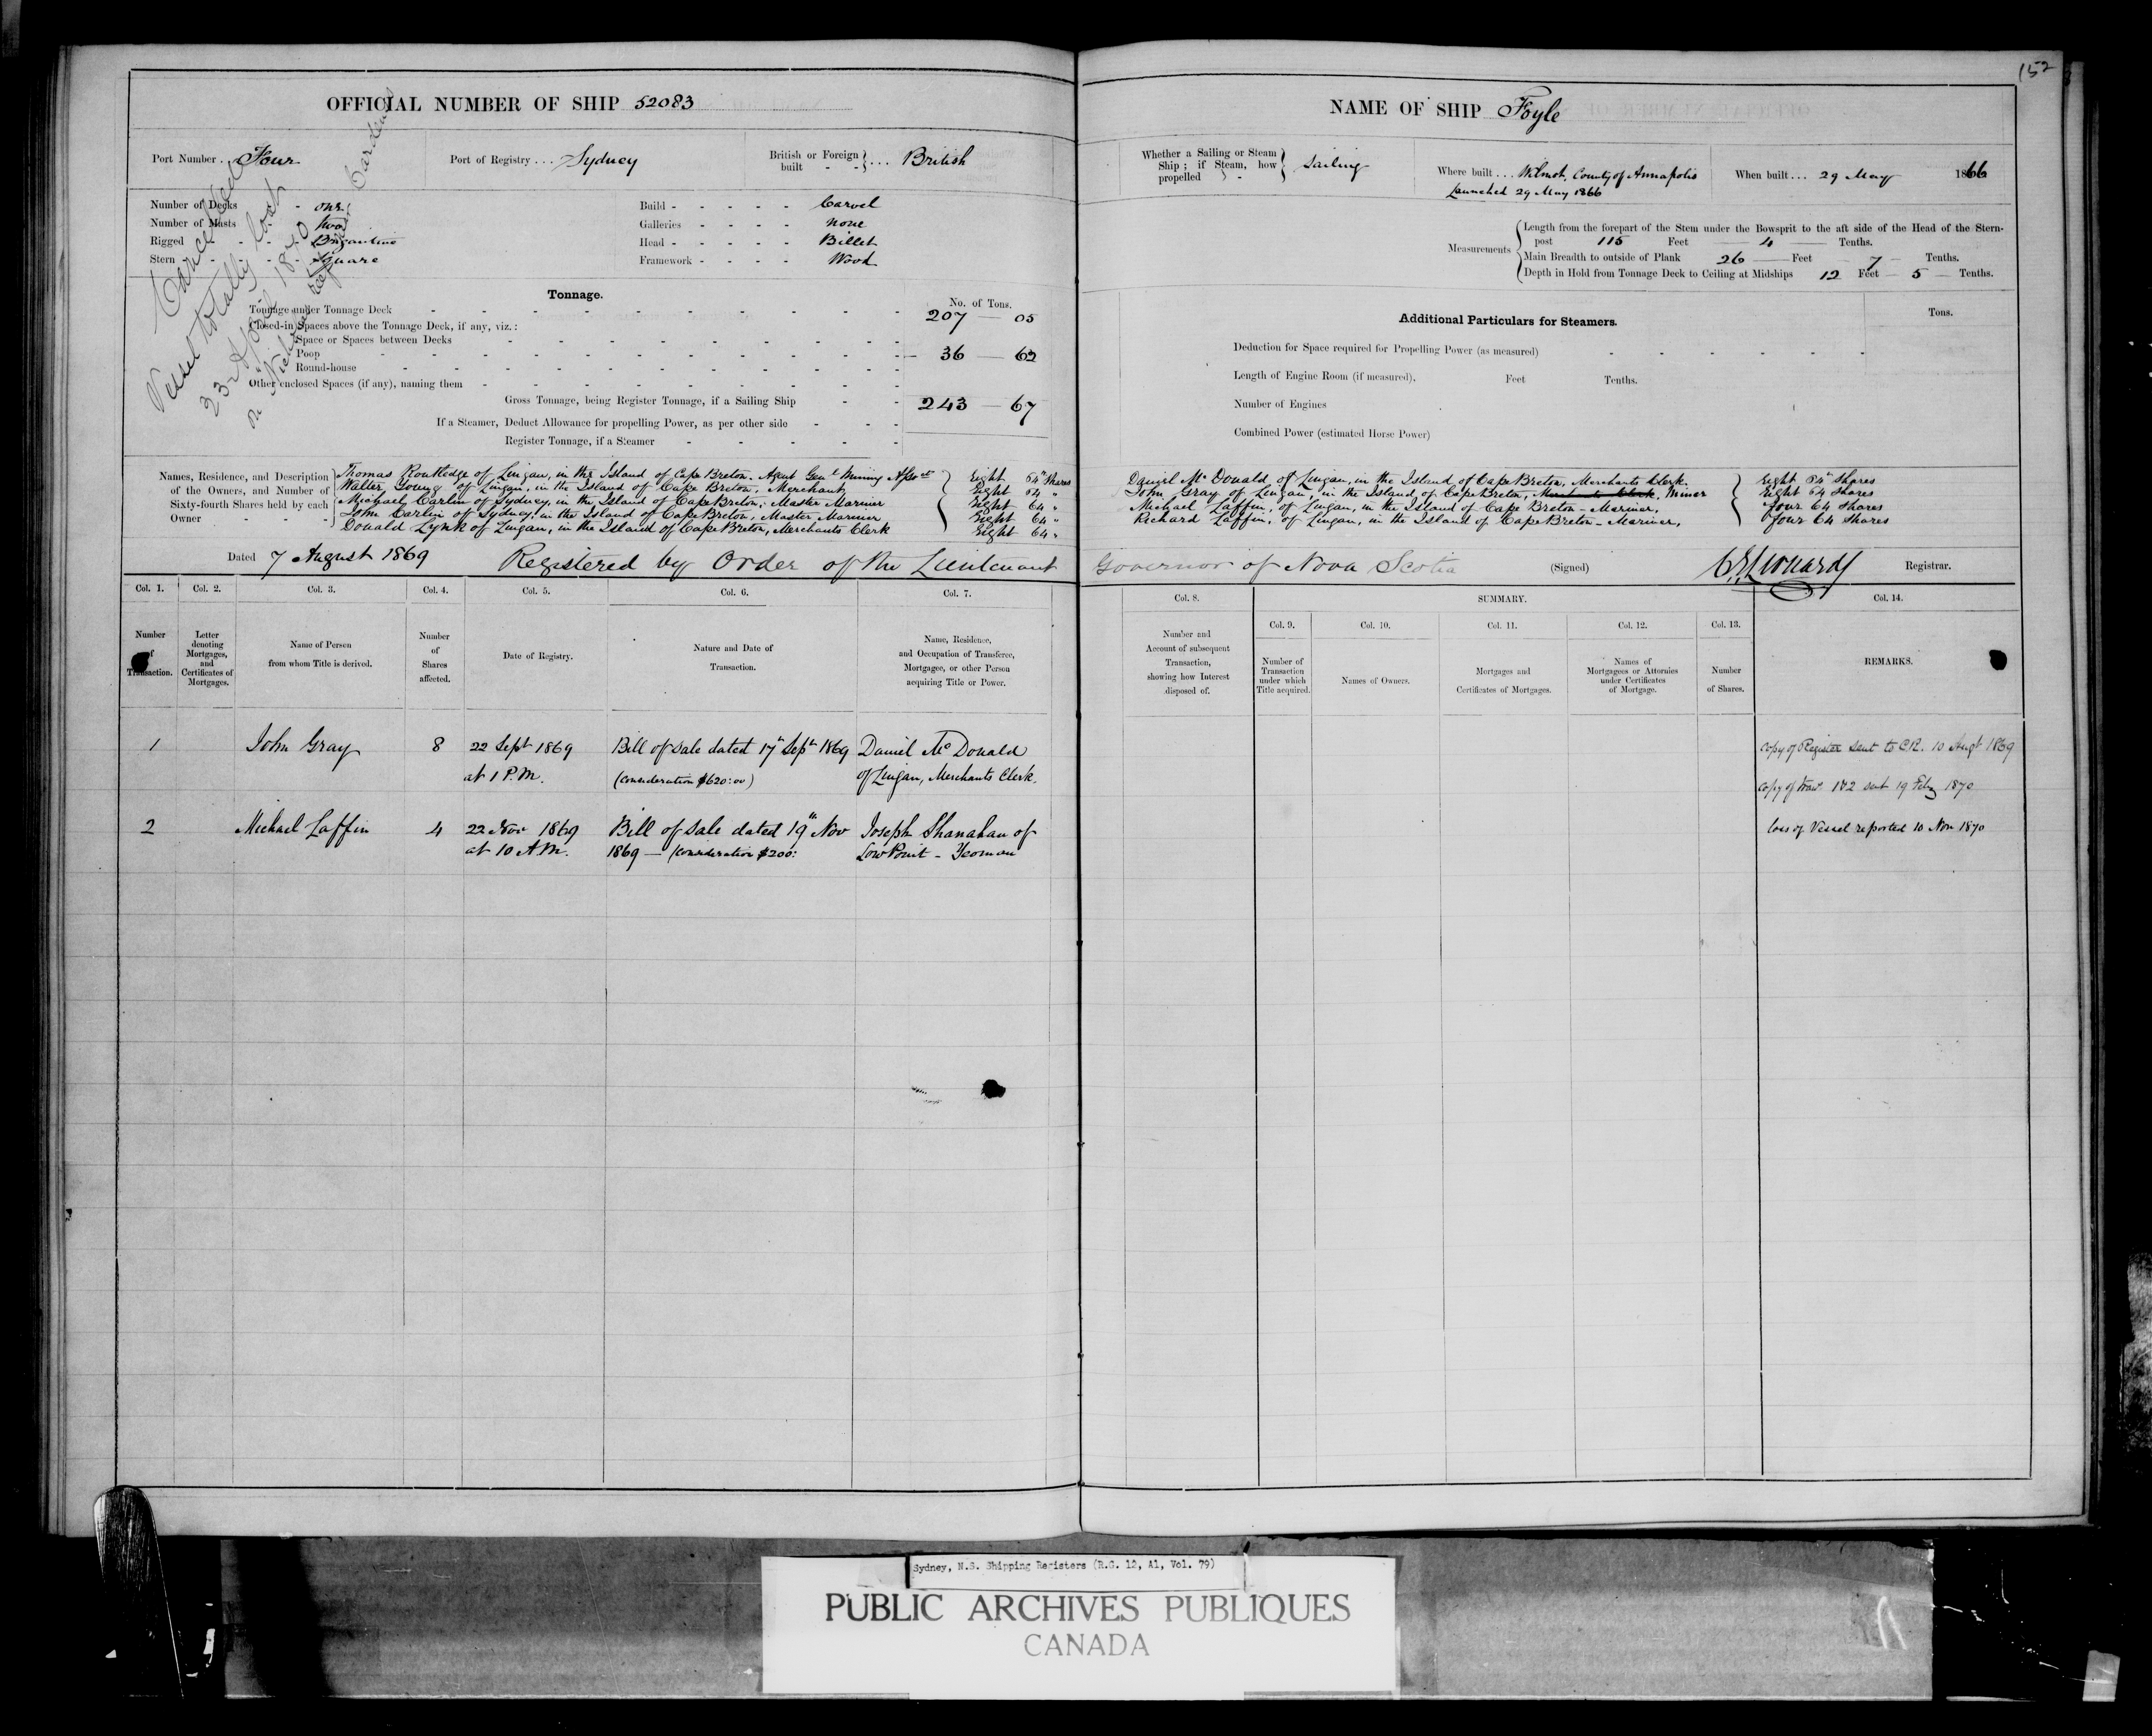 152
OFFICIAL NUMBER OF SHIP 52083
Port Number . . Four
Port of Registry . . . Sydney
British or Foreign built - - } . . . British
Number of Decks - one
Number of Masts - two
Rigged - - - Brigantine
Stern - - - Square
Build - - - - - Carvel
Galleries - - - - none
Head - - - - - Billet
Framework - - - - Wood
Cancelled
Vessel totally lost
23 April 1870
on Nicholas Reef near Cardenas
Tonnage.
No. of Tons.
Tonnage under Tonnage Deck 207 — 05
Closed-in Spaces above the Tonnage Deck, if any, viz.:
Space or Spaces between Decks
Poop 36 — 62
Round-house
Other enclosed Spaces (if any), naming them
Gross Tonnage, being Register Tonnage, if a Sailing Ship 243 — 67
If a Steamer, Deduct Allowance for propelling Power, as per other side
Register Tonnage, if a Steamer
Names, Residence, and Description of the Owners, and Number of Sixty-fourth Shares held by each Owner
Thomas Routledge of Lingan, in the Island of Cape Breton. Agent Genl Mining Assoctn Eight 64th Shares
Walter Young of Lingan, in the Island of Cape Breton, Merchant Eight 64 "
Michael Carlin of Sydney, in the Island of Cape Breton, Master Mariner Eight 64 "
John Carlin of Sydney, in the Island of Cape Breton, Master Mariner Eight 64 "
Donald Lynk of Lingan, in the Island of Cape Breton, Merchants Clerk Eight 64 "
Dated 7 August 1869 Registered by Order of the Lieutenant
Col. 1. Col. 2. Col. 3. Col. 4. Col. 5. Col. 6. Col. 7.
Number of Transaction.
Letter denoting Mortgages, and Certificates of Mortgages.
Name of Person from whom Title is derived.
Number of Shares affected.
Date of Registry.
Nature and Date of Transaction.
Name, Residence, and Occupation of Transferee, Mortgagee, or other Person acquiring Title or Power.
1 John Gray 8 22 Sept 1869 Bill of Sale dated 17th Septr 1869 Daniel McDonald
at 1 P.M. (Consideration $620:00) of Lingan, Merchants Clerk.
2 Michael Laffin 4 22 Nov 1869 Bill of Sale dated 19th Nov Joseph Shanahan of
at 10 A.M. 1869 — (Consideration $200: Low Point - Yeoman
NAME OF SHIP Foyle
Whether a Sailing or Steam Ship; if Steam, how propelled - } Sailing
Where built . . . Wilmot, County of Annapolis
Launched 29 May 1866
When built . . . 29 May 1866
Measurements
Length from the forepart of the Stem under the Bowsprit to the aft side of the Head of the Stern-
post 115 Feet — 4 — Tenths.
Main Breadth to outside of Plank 26 — Feet — 7 — Tenths.
Depth in Hold from Tonnage Deck to Ceiling at Midships 12 Feet — 5 — Tenths.
Additional Particulars for Steamers.
Tons.
Deduction for Space required for Propelling Power (as measured)
Length of Engine Room (if measured), Feet Tenths.
Number of Engines
Combined Power (estimated Horse Power)
Daniel McDonald of Lingan, in the Island of Cape Breton, Merchants Clerk. Eight 64th Shares
John Gray of Lingan, in the Island of Cape Breton, Merchants Clerk. Miner Eight 64 Shares
Michael Laffin, of Lingan, in the Island of Cape Breton - Mariner. Four 64 Shares
Richard Laffin, of Lingan, in the Island of Cape Breton - Mariner, Four 64 Shares
Governor of Nova Scotia (Signed) Leonard Registrar.
Col. 8. SUMMARY. Col. 14.
Col. 9. Col. 10. Col. 11. Col. 12. Col. 13.
Number and Account of subsequent Transaction, showing how Interest disposed of.
Number of Transaction under which Title acquired.
Names of Owners.
Mortgages and Certificates of Mortgages.
Names of Mortgagees or Attornies under Certificates of Mortgage.
Number of Shares.
REMARKS.
Copy of Register sent to C.R. 10 Augt 1869
Copy of tran. 1&2 sent 19 Feby 1870
loss of Vessel reported 10 Nov 1870
Sydney, N.S. Shipping Registers (R.G. 12, A1, Vol. 79)
PUBLIC ARCHIVES PUBLIQUES
CANADA